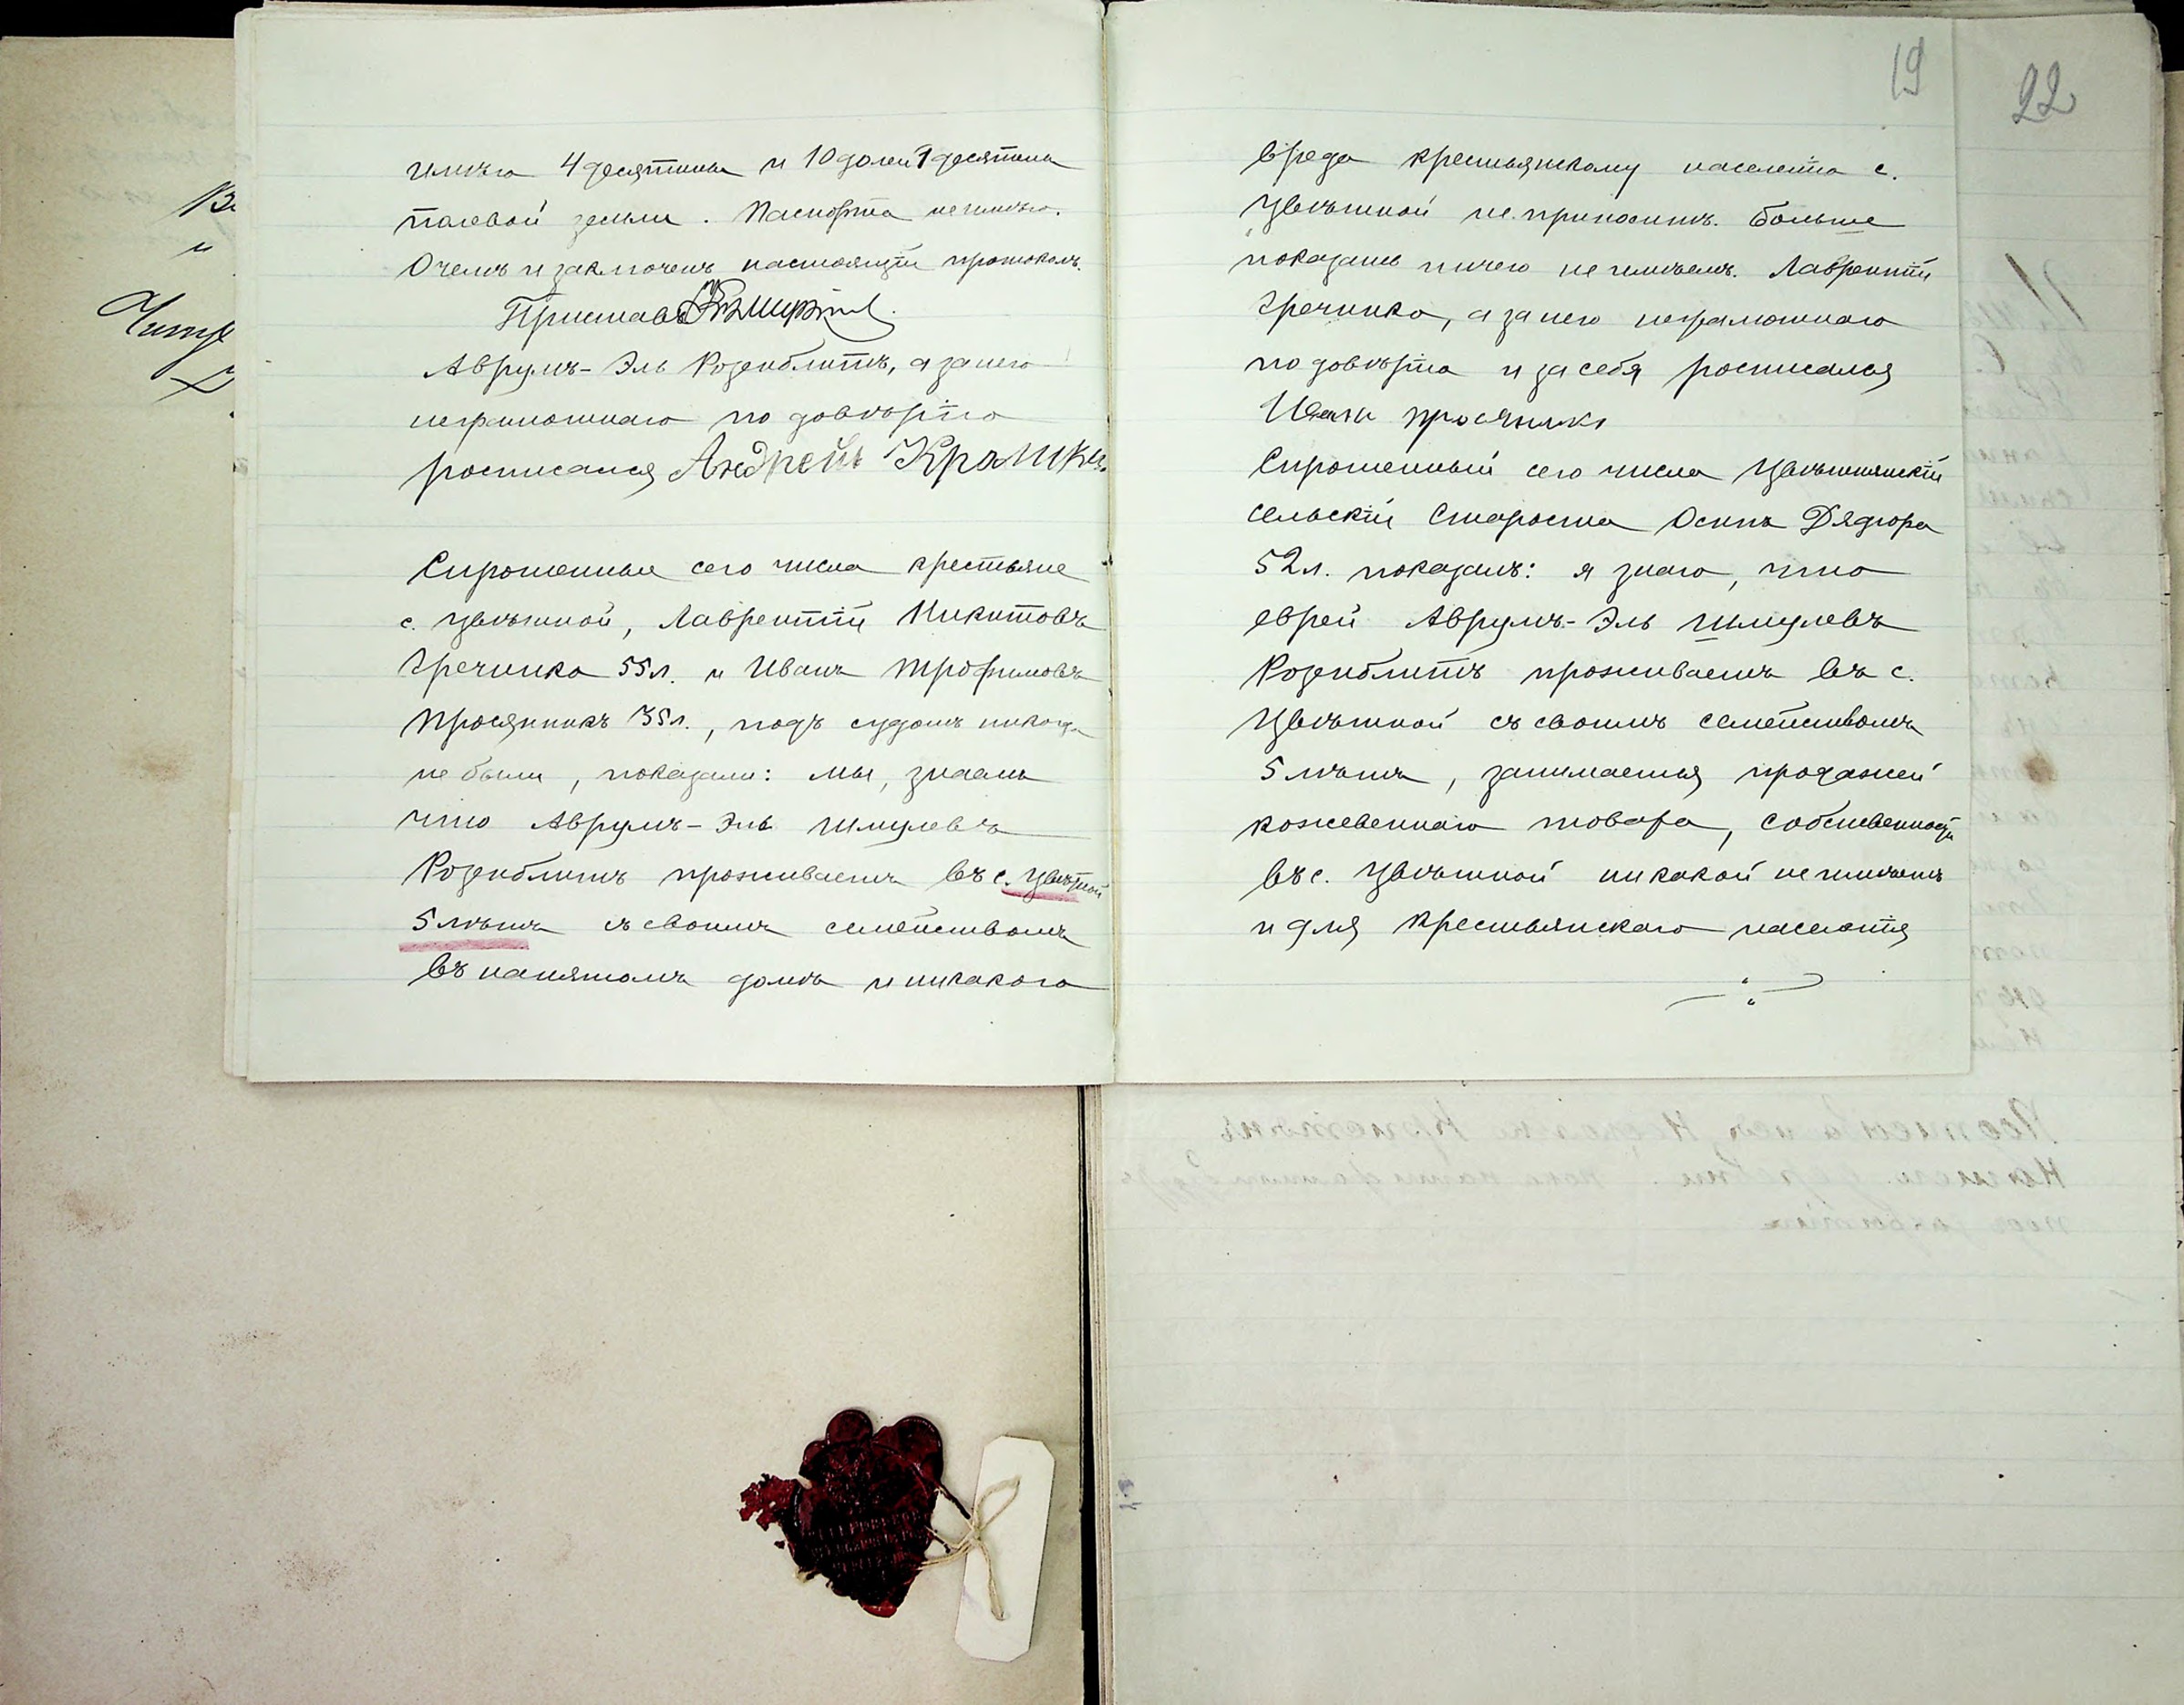 имѣю 4 десятины и 10 долей 1 десятины
полевой земли. Паспорта неимѣю.
О чемъ и заключенъ настоящій протоколъ.
Приставъ
Аврумъ-Эль Розенблитъ, а за него
неграмотнаго по довѣрію
росписался Андрей Крашка
Спрошенные сего числа крестьяне
с. Цвѣтной, Лаврентій Никитовъ
Гречинко 55 л. и Иванъ Трофимовъ
Просянникъ 35 л., подъ судомъ никогда
не были, показали: мы, знаемъ
что Аврумъ-Эль Шмулевъ
Розенблитъ проживаетъ въ с. Цвѣтной
5 лѣтъ съ своимъ семействомъ
въ нанятомъ домѣ и никакого
19
вреда крестьянскому населенію с.
Цвѣтной не приноситъ. Больше
показать ничего не имѣемъ. Лаврентій
Гречинко, а за него неграмотнаго
по довѣрію и за себя росписался
Иванъ Просянникъ
Спрошенный сего числа Цвѣтнянскій
сельскій Староста Осипъ Дядюра
52 л. показалъ: я знаю, что
еврей Аврумъ-Эль Шмулевъ
Розенблитъ проживаетъ въ с.
Цвѣтной съ своимъ семействомъ
5 лѣтъ, занимается продажей
кожевеннаго товара, собственности
въ с. Цвѣтной никакой не имѣетъ
и для крестьянскаго населенія
22